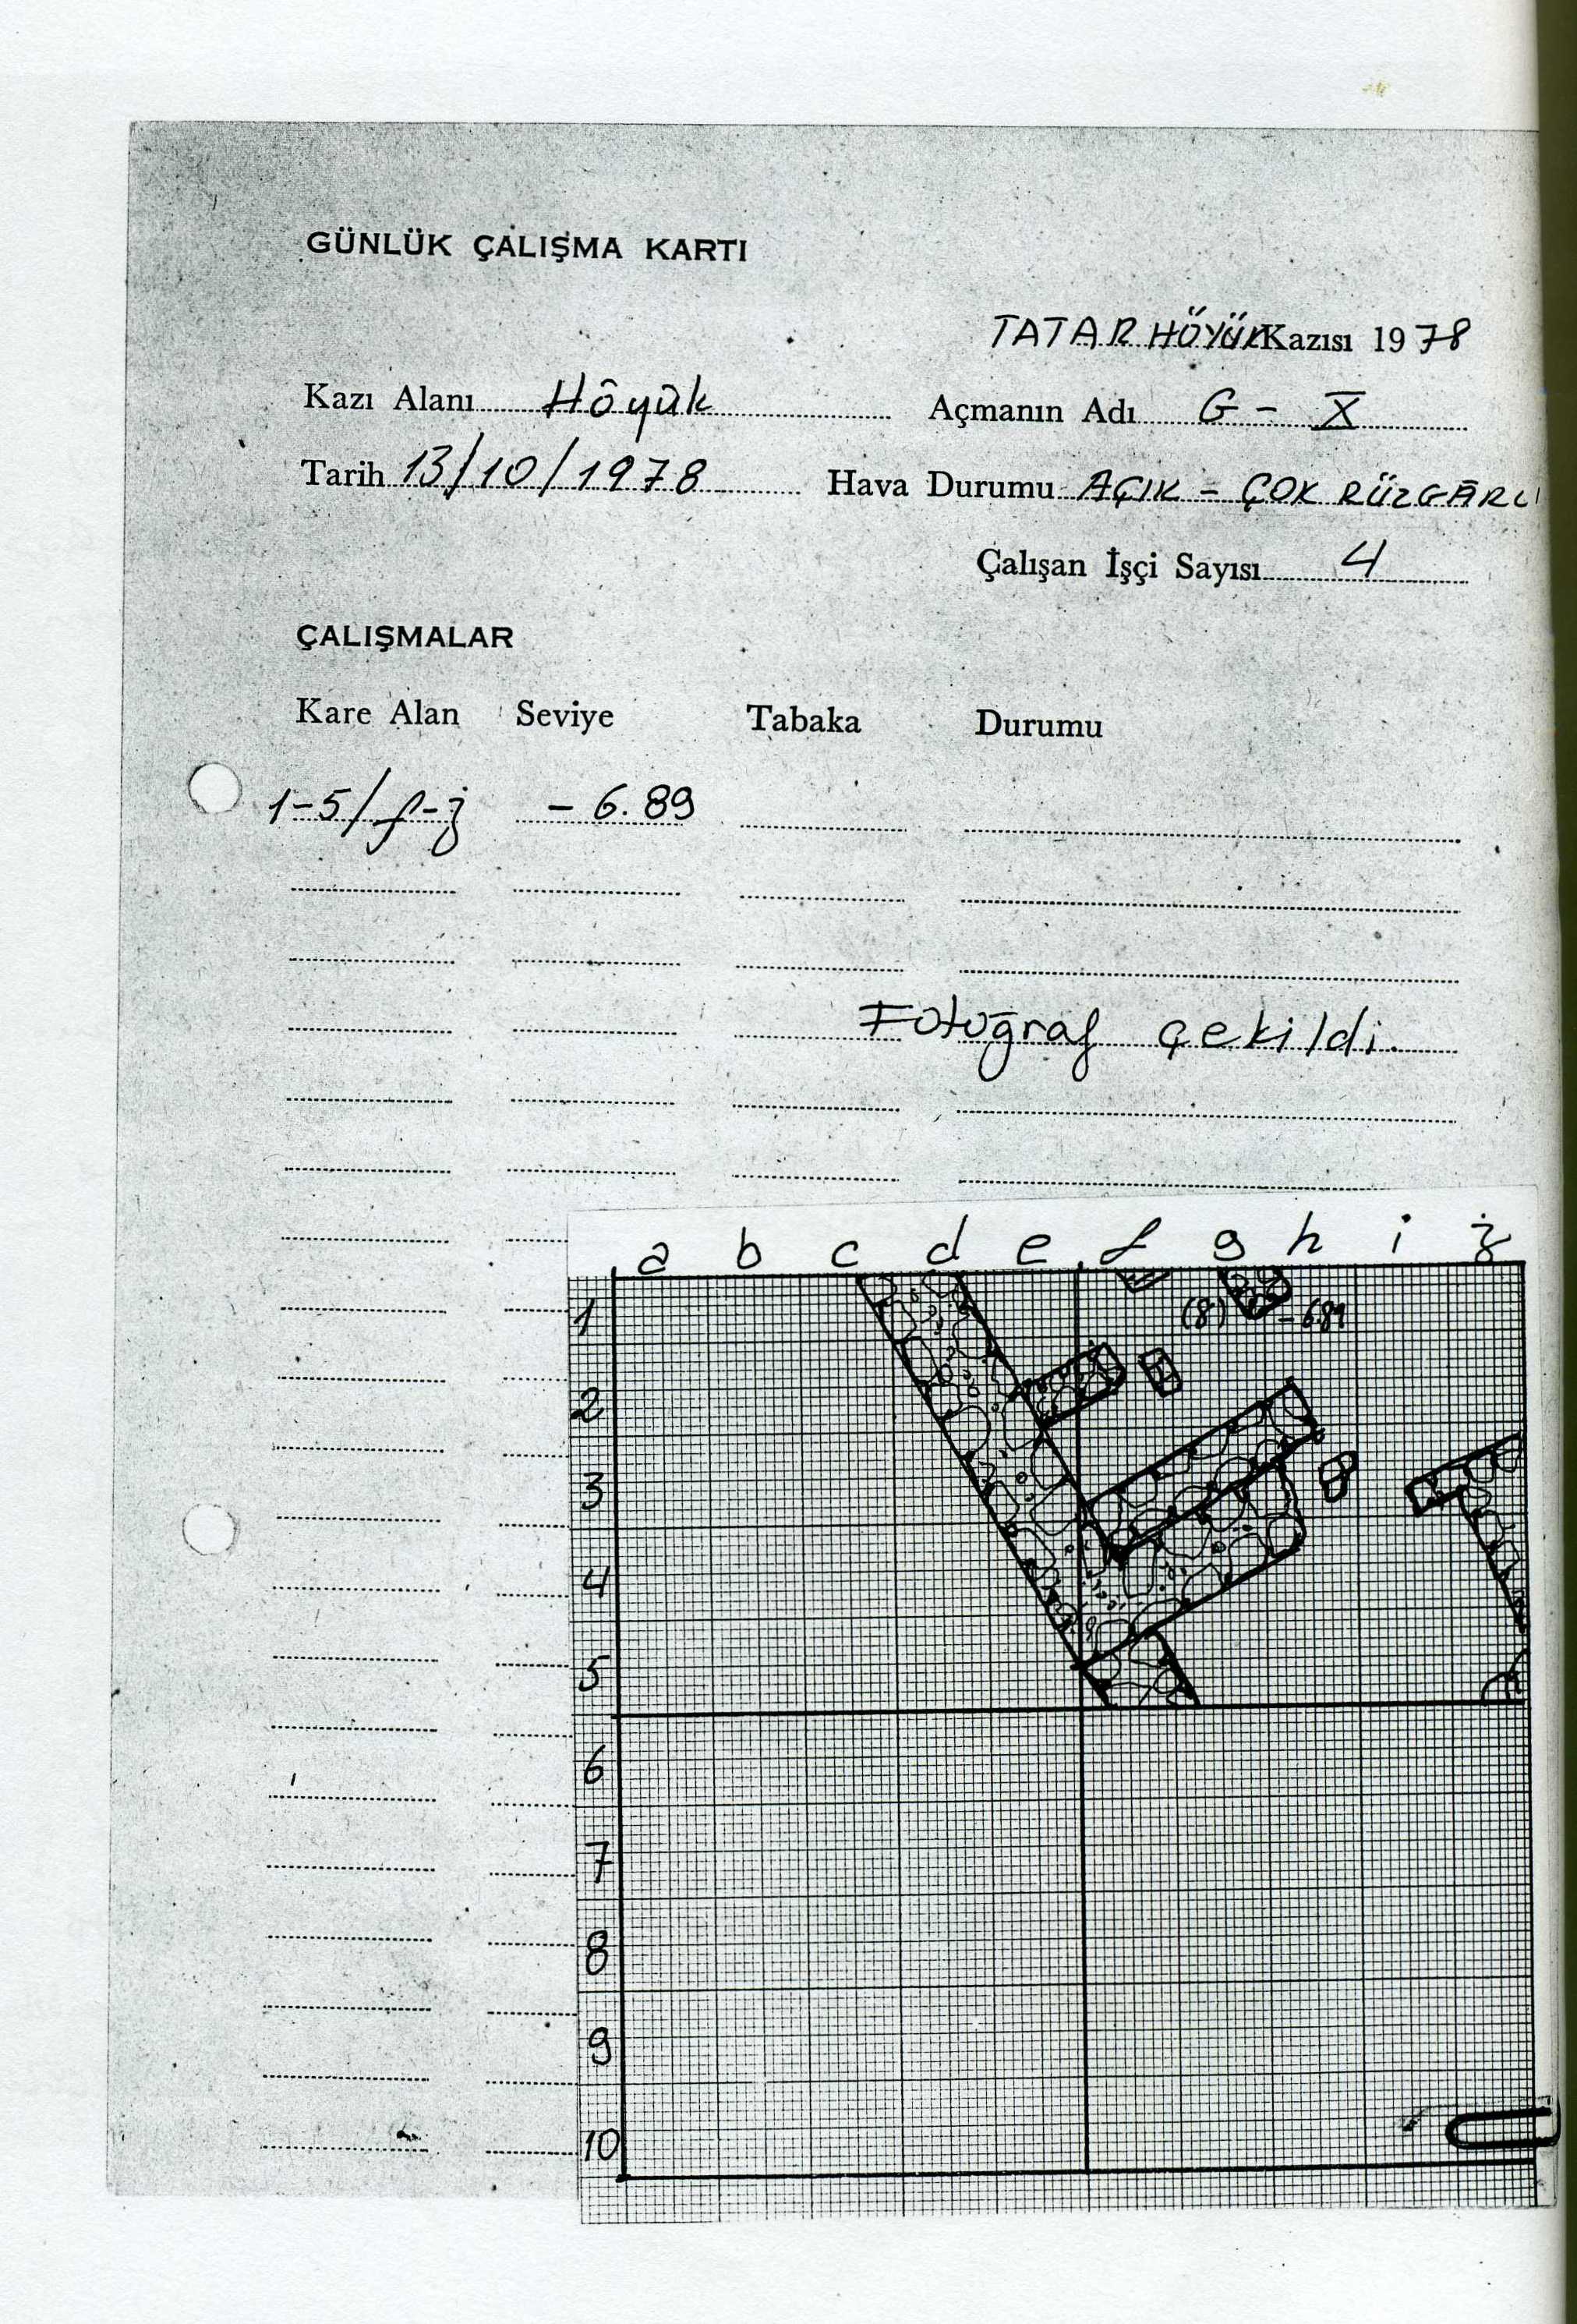 GÜNLÜK ÇALIŞMA KARTI
TATAR HÖYÜK Kazısı 1978
Kazı Alanı Höyük Açmanın Adı G - X
Tarih 13/10/1978 Hava Durumu AÇIK - ÇOK RÜZGÂRLI
Çalışan İşçi Sayısı 4
ÇALIŞMALAR
Kare Alan Seviye Tabaka Durumu
1-5/f-j - 6.89
Fotoğraf çekildi.
a b c d e f g h i j
1
(8) - 6.89
2
3
4
5
6
7
8
9
10